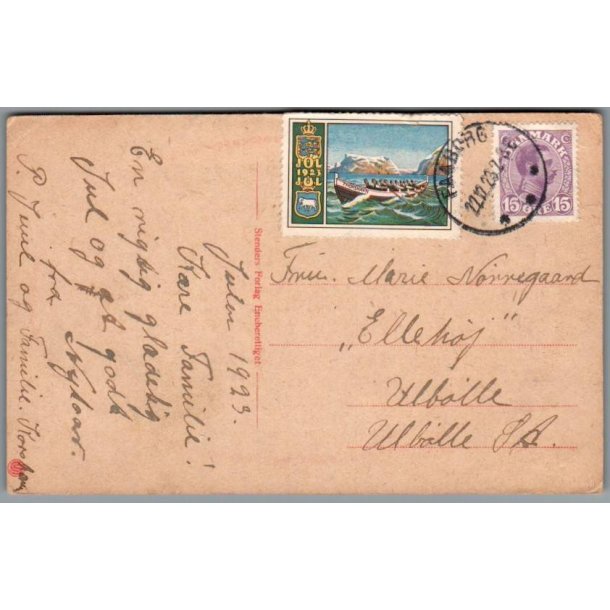 Julen 1923.
Kære Familie!
En rigtig glædelig
Jul og et godt
Nytaar.
fra
P. Juul og Familie.
JUL
1923
JUL
FAABORG
22.12.23
DANMARK
15 ØRE 15
Fru Marie Nørregaard
„Ellehøj"
Ulbølle
Ulbølle St.
Stenders Forlag Eneberettiget